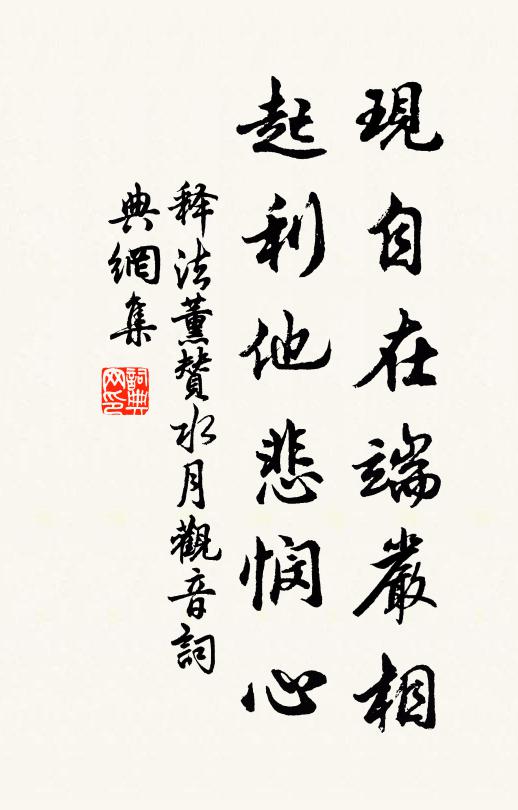 現自在端嚴相
起利他悲憫心
释法薰贊水月觀音詞
典網集
詞典网印